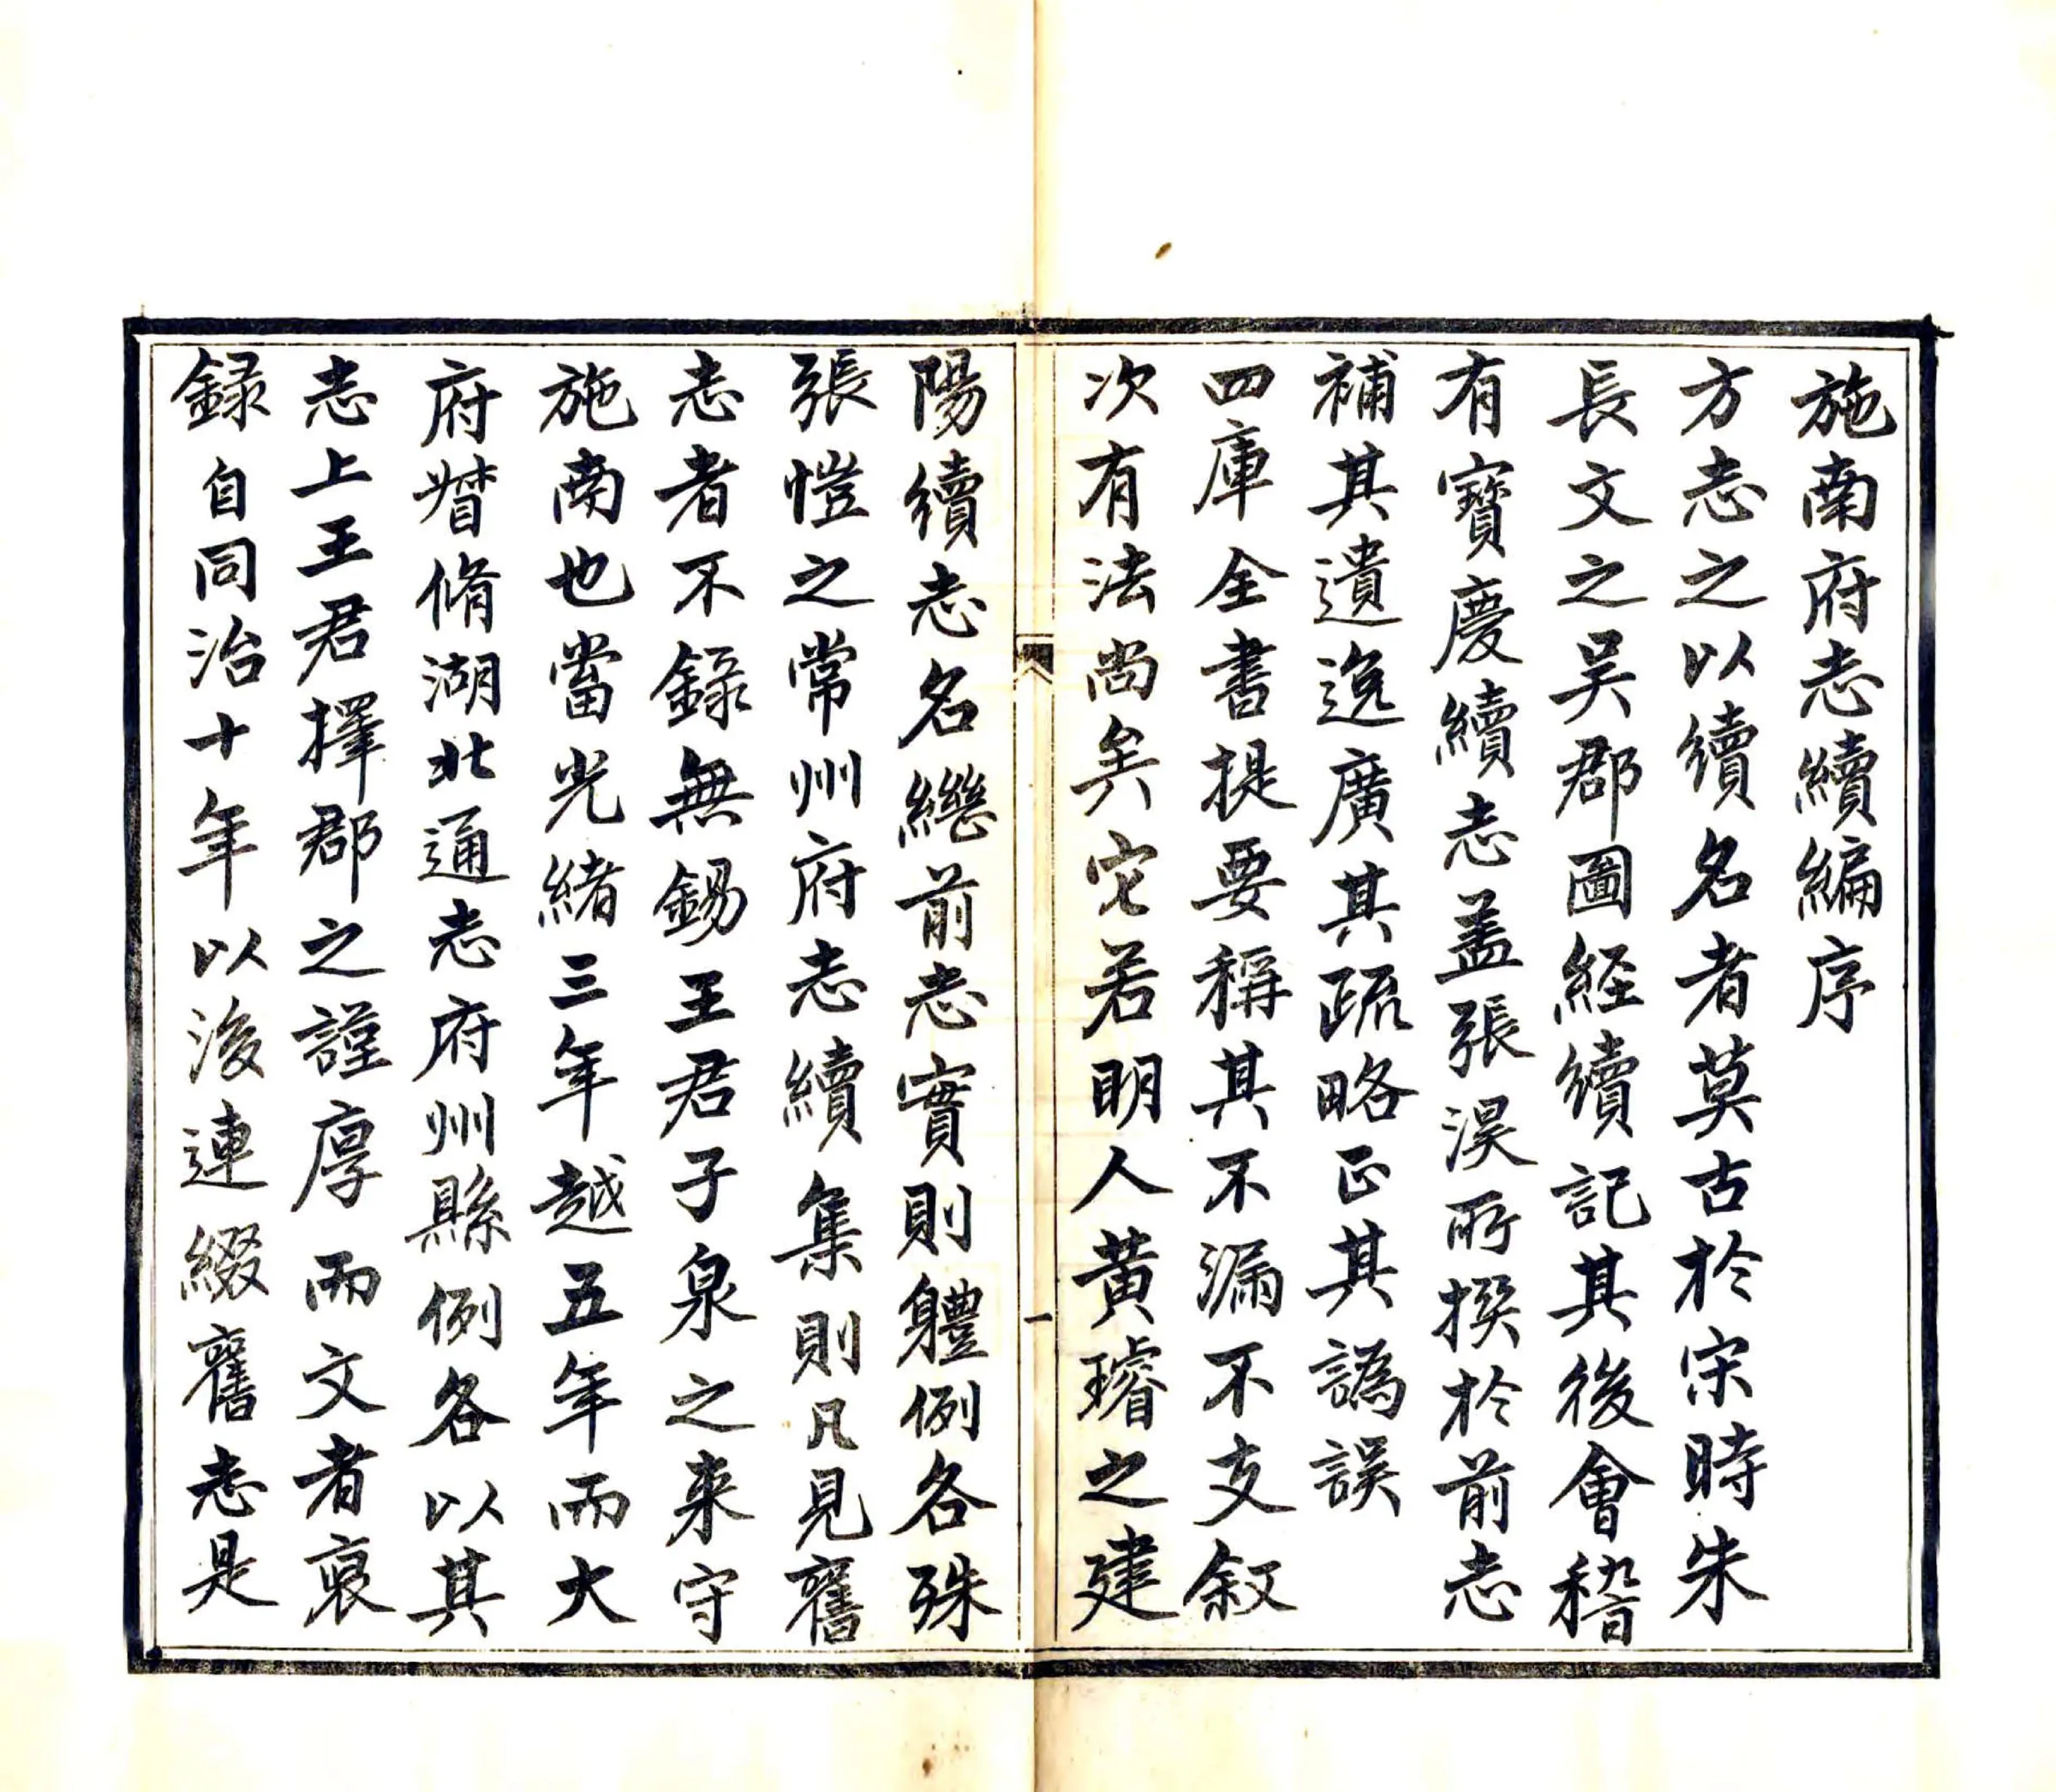 施南府志續編序
方志之以續名者莫古於宋時朱
長文之吴郡圖経續記其後會稽
有寶慶續志盖張淏所撰於前志
補其遺逸廣其疏略正其譌誤
四庫全書提要稱其不漏不支叙
次有法尚矣它若明人黄璿之建
一
陽續志名繼前志實則軆例各殊
張愷之常州府志續集則凡見舊
志者不録無錫王君子泉之来守
施南也當光緒三年越五年而大
府督脩湖北通志府州縣例各以其
志上王君擇郡之謹厚而文者裒
録自同治十年以後連綴舊志是